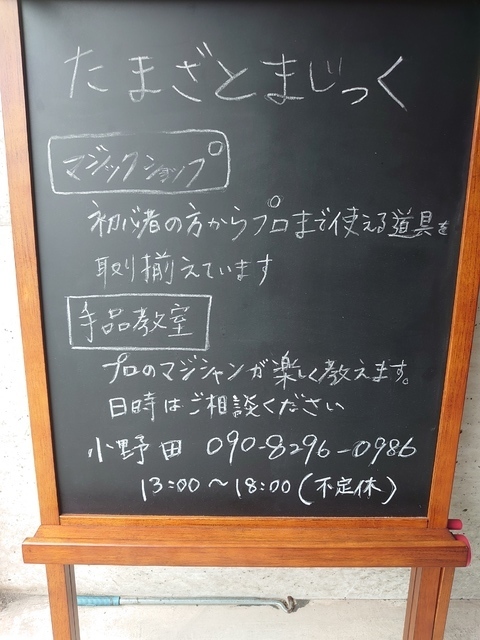 たまざとまじっく
マジックショップ
初心者の方からプロまで使える道具を
取り揃えています
手品教室
プロのマジシャンが楽しく教えます。
日時はご相談ください
小野田 090-8296-0986
13:00～18:00(不定休)